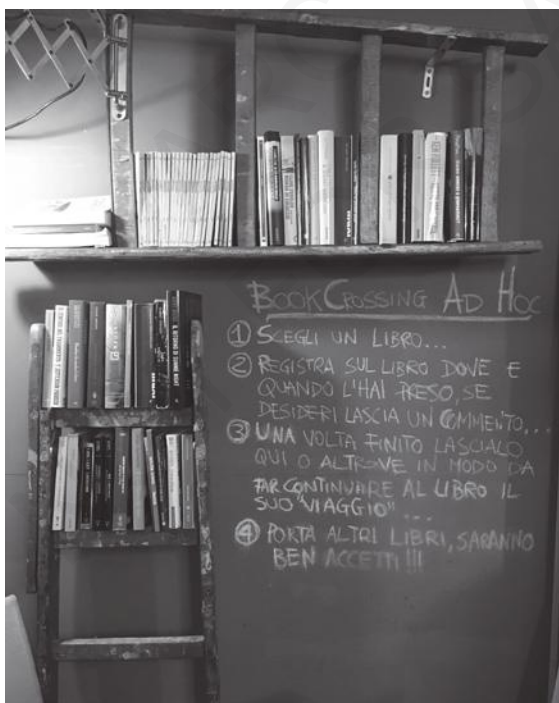 BOOKCROSSING AD HOC
① SCEGLI UN LIBRO...
② REGISTRA SUL LIBRO DOVE E
QUANDO L'HAI PRESO, SE
DESIDERI LASCIA UN COMMENTO...
③ UNA VOLTA FINITO LASCIALO
QUI O ALTROVE IN MODO DA
FAR CONTINUARE AL LIBRO IL
SUO "VIAGGIO"...
④ PORTA ALTRI LIBRI, SARANNO
BEN ACCETTI!!!